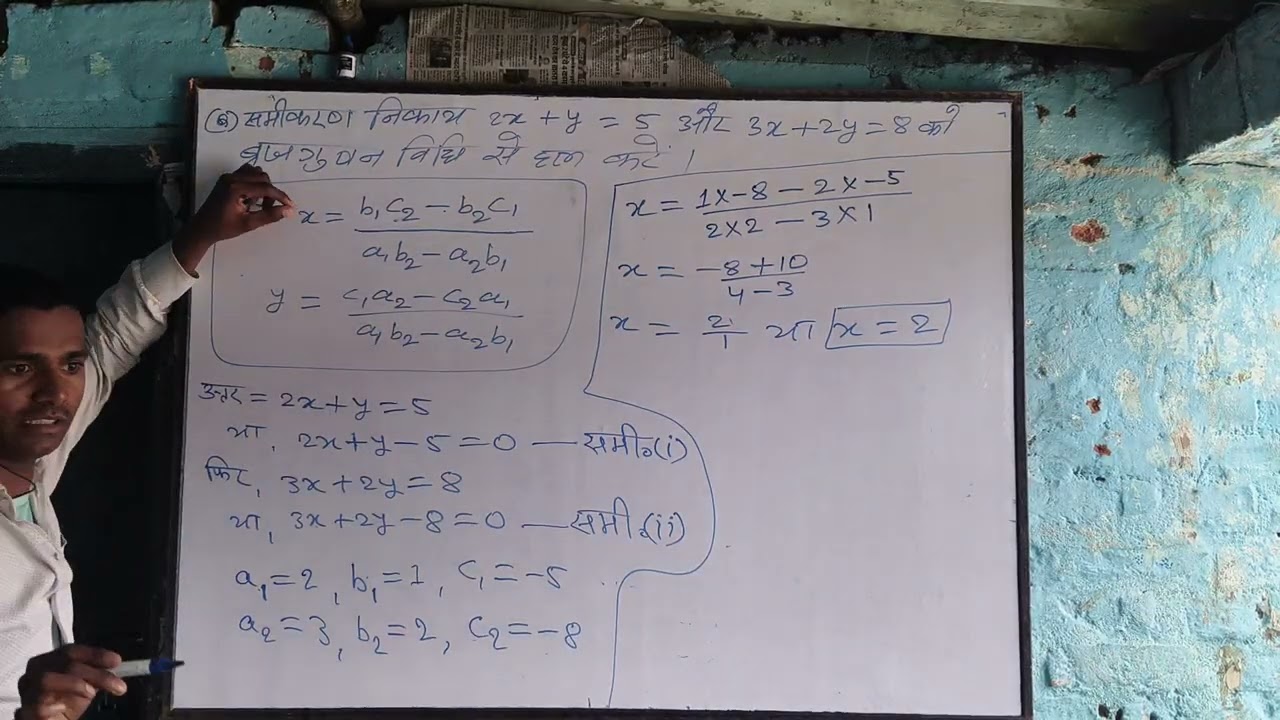 (6) समीकरण निकाय 2x + y = 5 और 3x + 2y = 8 को
बज्रगुणन विधि से हल करें ।
x = \frac{b₁c₂ - b₂c₁}{a₁b₂ - a₂b₁}
y = \frac{c₁a₂ - c₂a₁}{a₁b₂ - a₂b₁}
उत्तर = 2x + y = 5
या, 2x + y - 5 = 0 — समी०(i)
फिर, 3x + 2y = 8
या, 3x + 2y - 8 = 0 — समी०(ii)
a₁ = 2, b₁ = 1, c₁ = -5
a₂ = 3, b₂ = 2, c₂ = -8
x = \frac{1 × -8 - 2 × -5}{2 × 2 - 3 × 1}
x = \frac{-8 + 10}{4 - 3}
x = \frac{2}{1} या x = 2